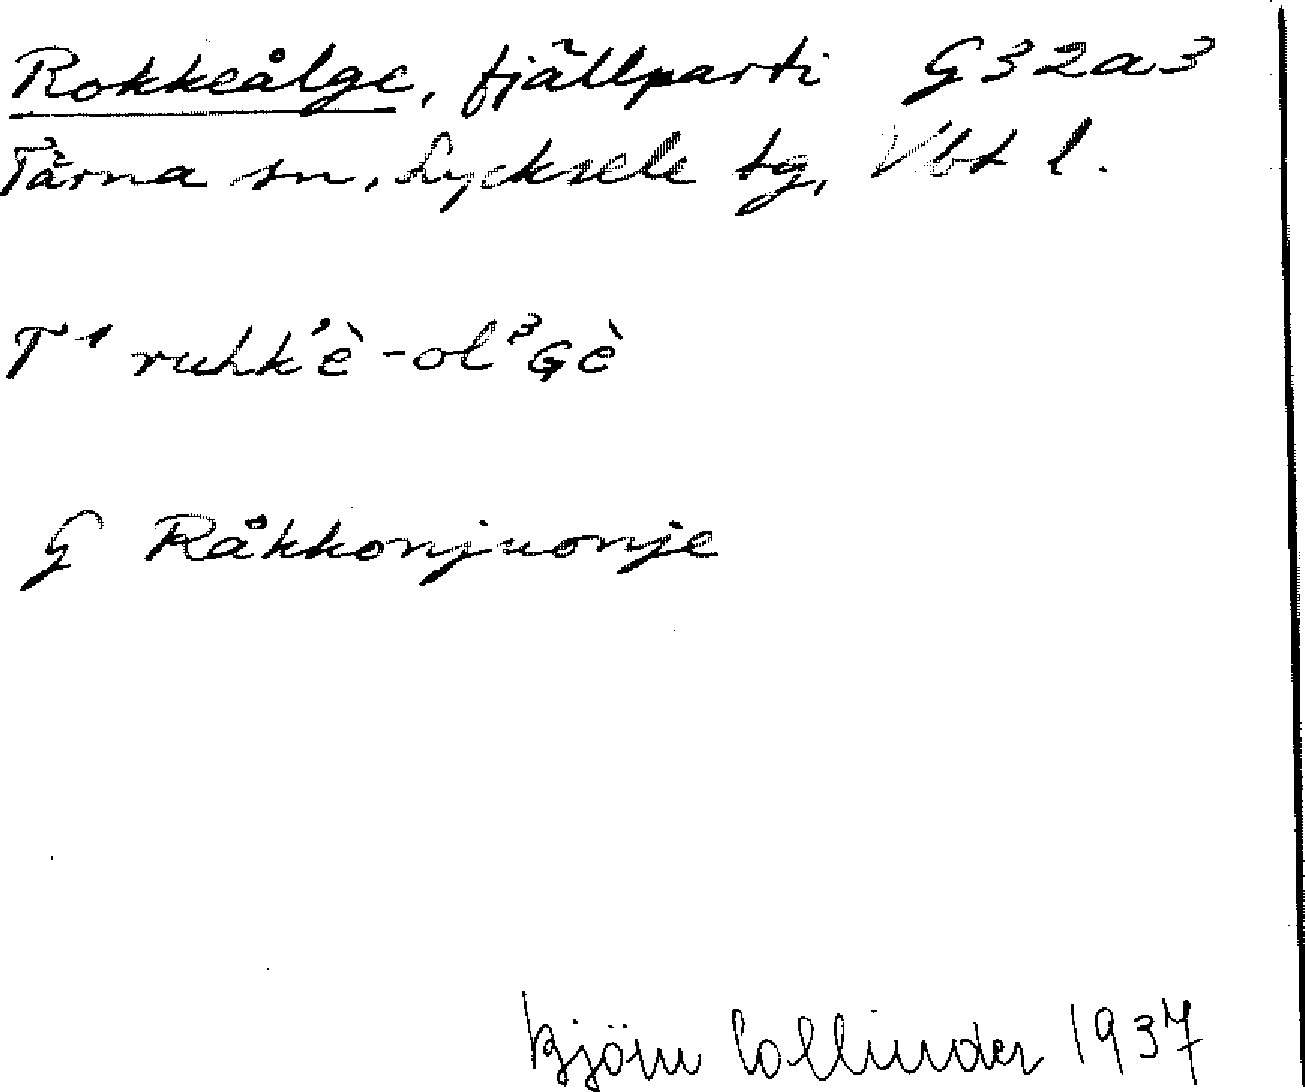 Rokkeålge, fjällparti G32a3
Tärna sn, Lycksele tg, Vbt l.
T¹ ruhk'è-ol³Gè
G Råkkonjuonje
Björn Collinder 1937